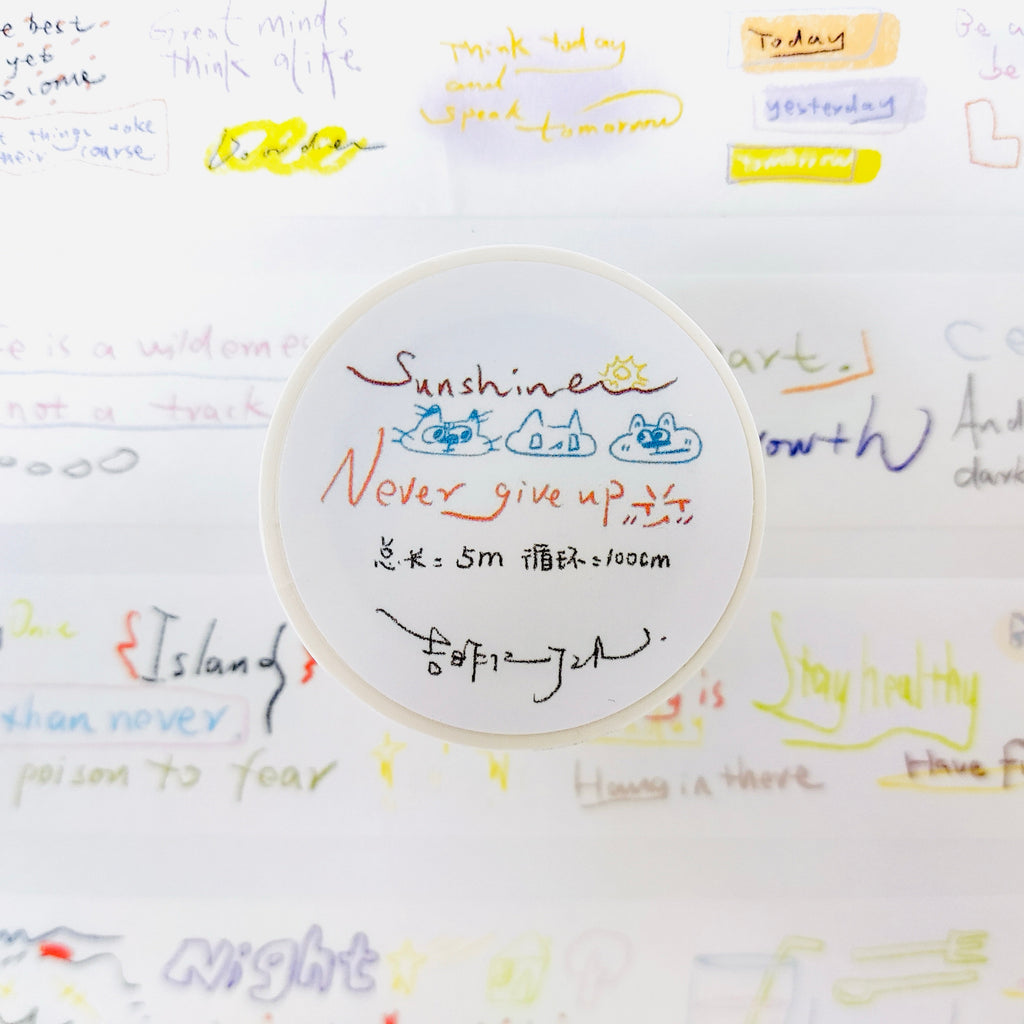 e best
yet
come
things take
their course
Great minds
think alike
Think today
and
speak tomorrow
Today
yesterday
tomorrow
Be a
be
is a wildernes
not a track
art.
owth
And
dark
Sunshine
Never give up
总长=5m 循环=100cm
Once
{Island}
than never.
poison to fear
is
Stay healthy
Hang in there
Have fu
Night